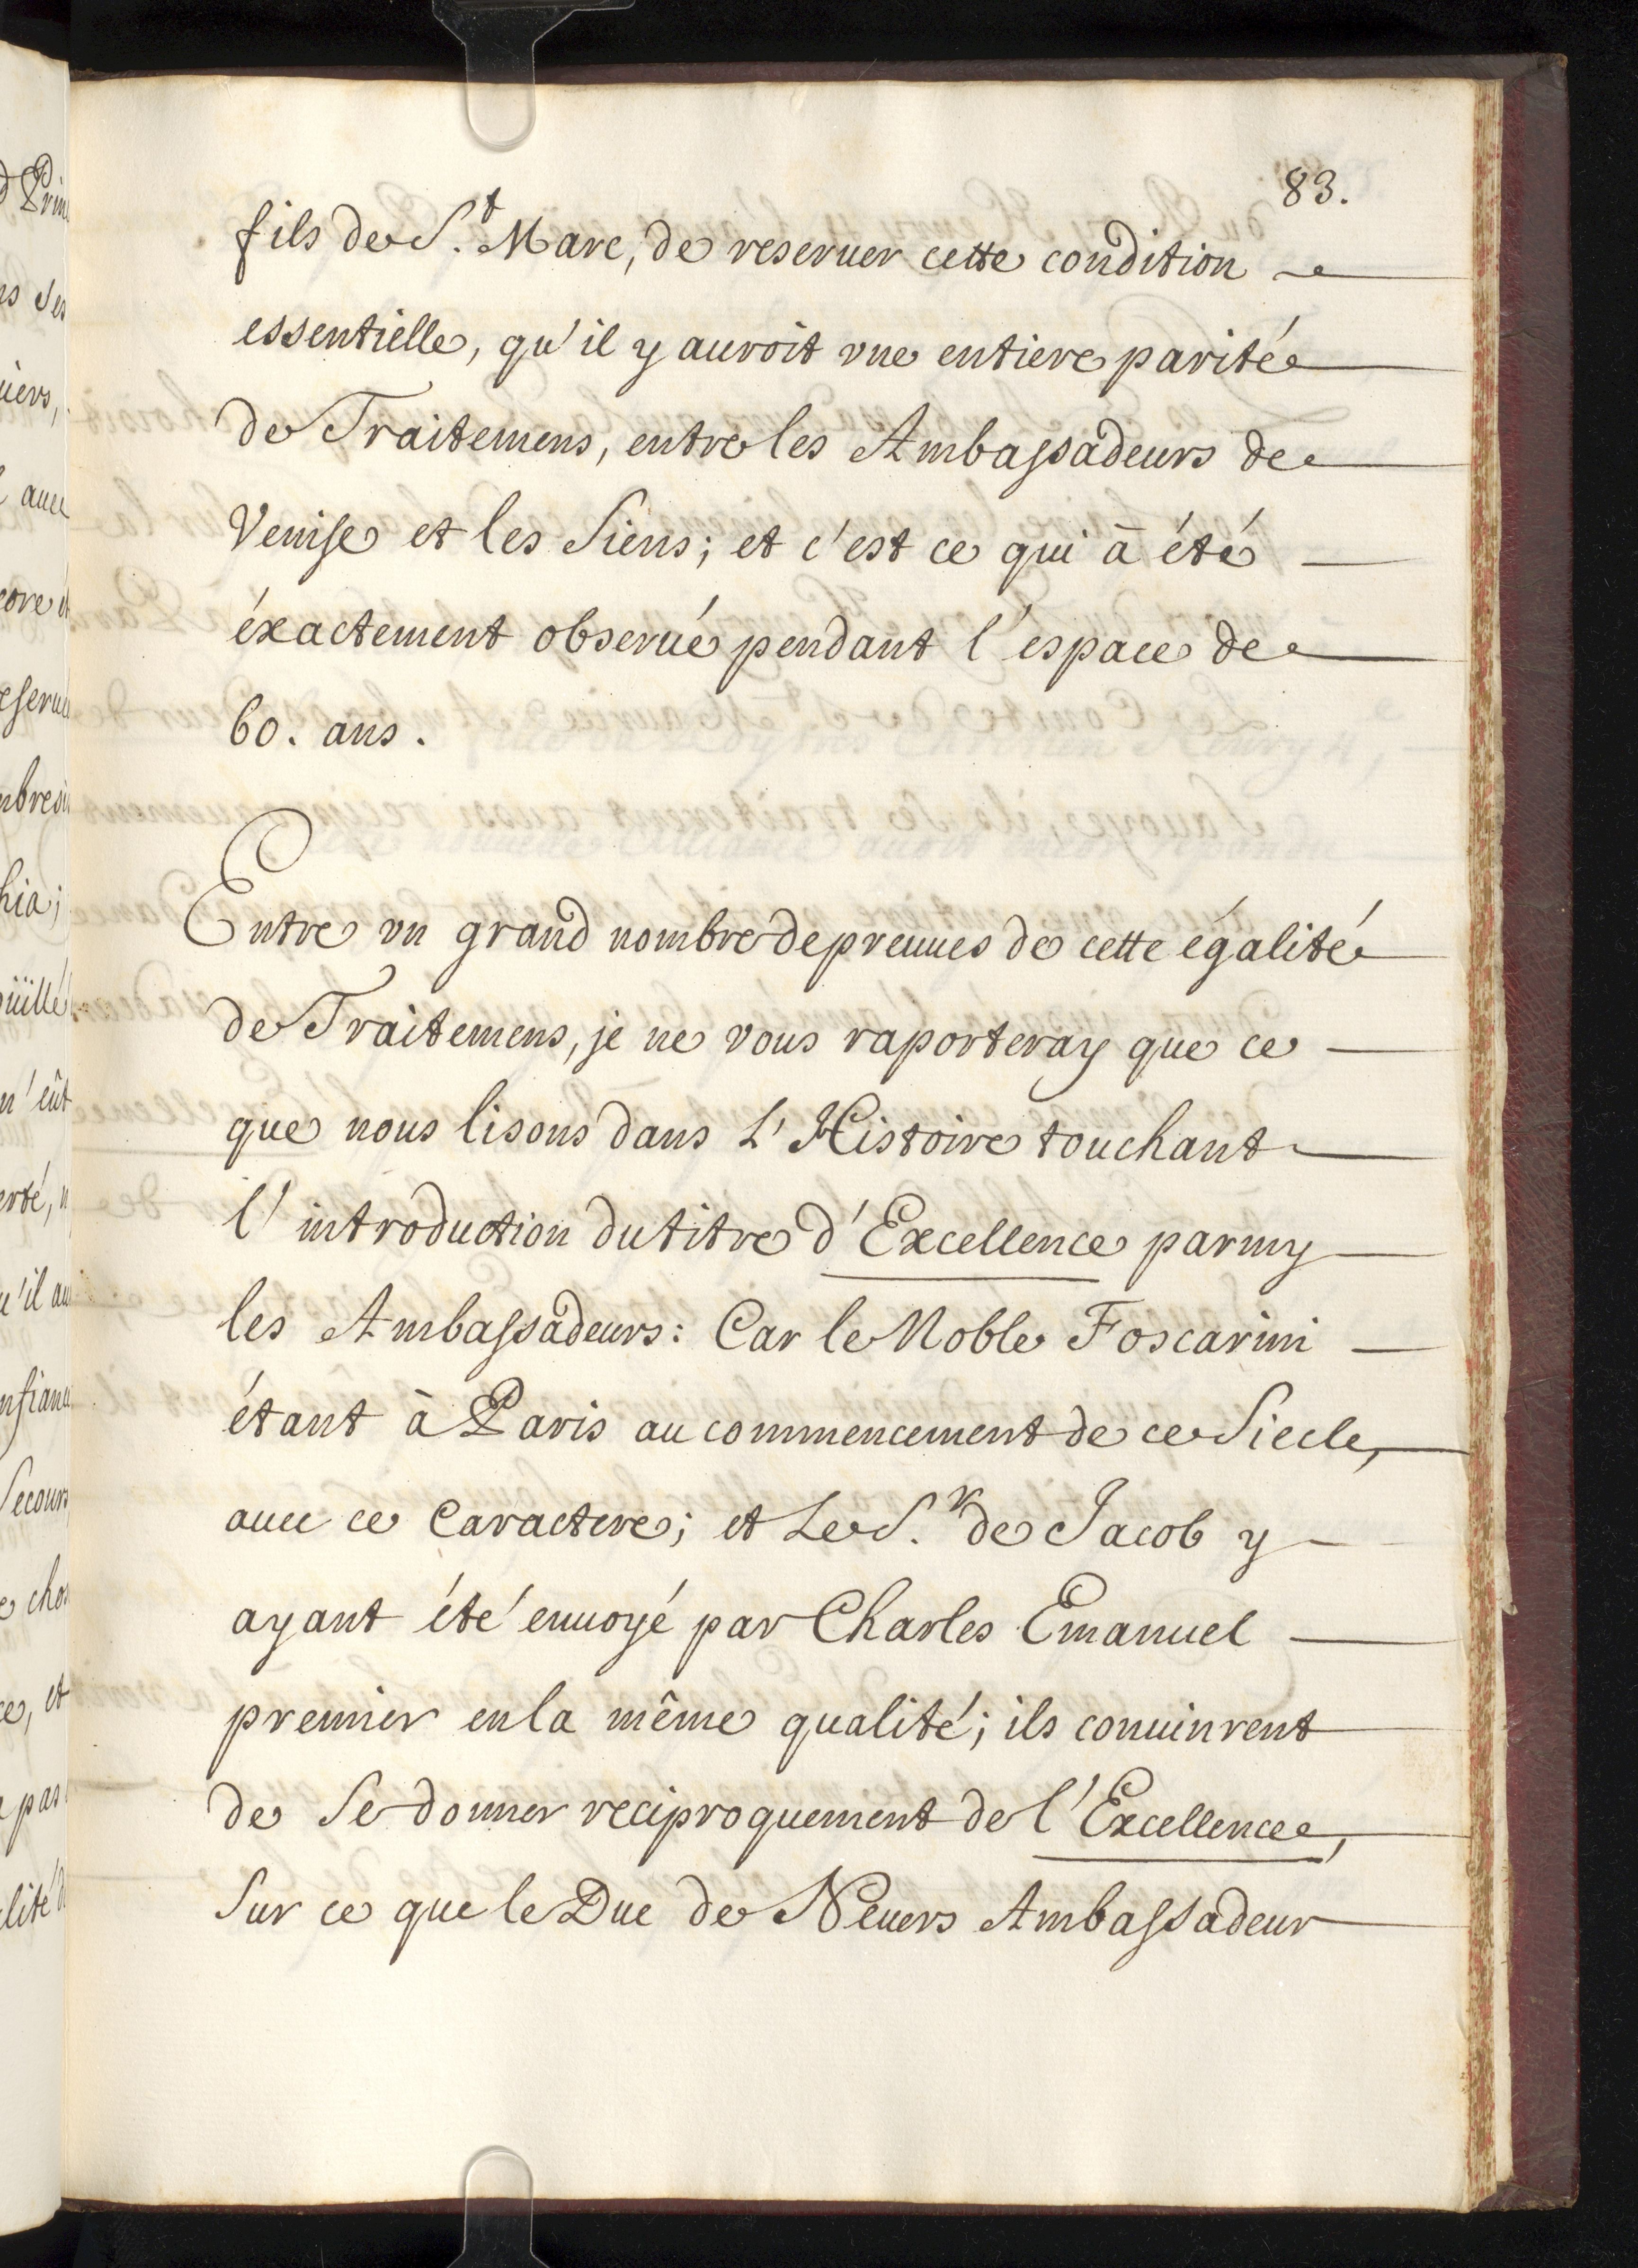 83.
fils de S.t Marc, de reseruer cette condition
essentielle, qu'il y auroit vne entiere parité
de Traitemens, entre les Ambassadeurs de
Venise et les Siens; et c'est ce qui à été
éxactement obserué pendant l'espace de
60. ans.
Entre vn grand nombre de preuues de cette égalité
de Traitemens, je ne vous raporteray que ce
que nous lisons dans L'Histoire touchant
l'introduction du titre d'Excellence parmy
les Ambassadeurs: Car le Noble Foscarini
étant à Paris au commencement de ce Siecle,
auec ce Caractere; et Le S.r de Jacob y
ayant été enuoyé par Charles Emanuel
premier en la même qualité; ils conuinrent
de Se donner reciproquement de l'Excellence,
Sur ce que le Duc de Neuers Ambassadeur